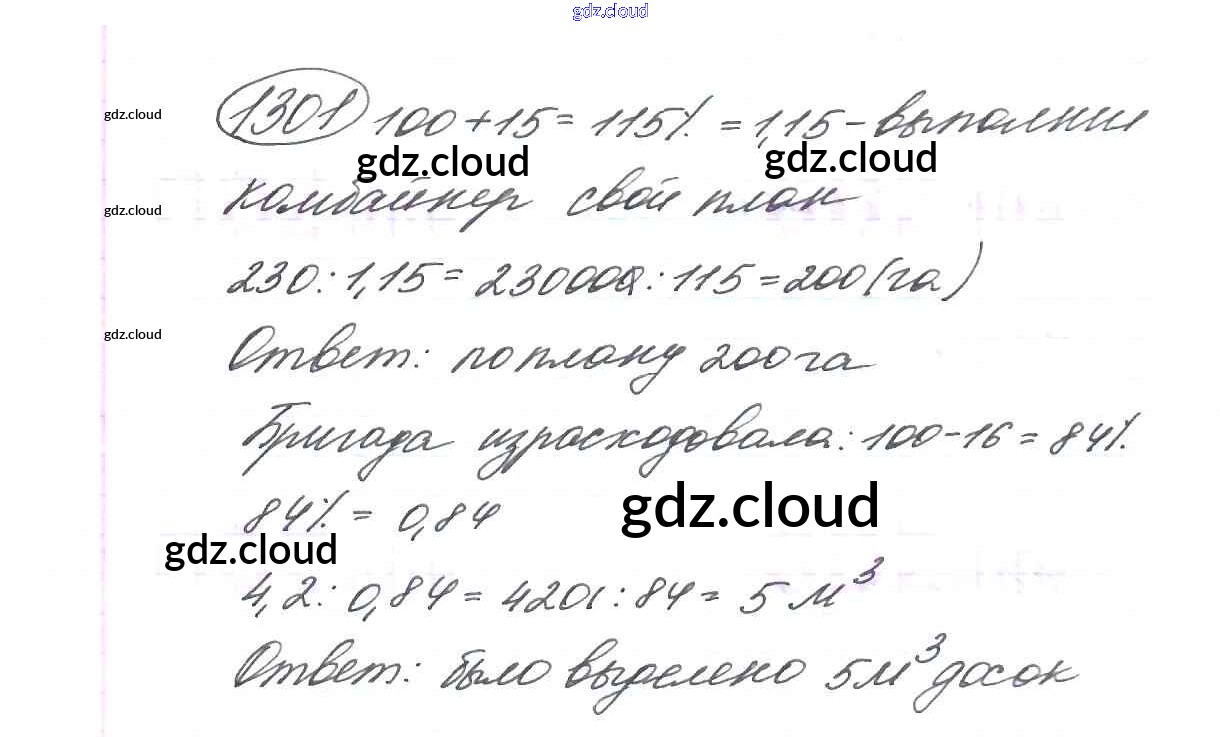 gdz.cloud
1301 100+15= 115% = 1,15 – выполнил
gdz.cloud
gdz.cloud
gdz.cloud
комбайнер свой план
gdz.cloud
230:1,15= 230000:115=200(га)
gdz.cloud
Ответ: по плану 200 га
Бригада израсходовала: 100-16=84%
84% = 0,84
gdz.cloud
gdz.cloud
4,2:0,84=420:84= 5 м³
Ответ: было выделено 5м³ досок